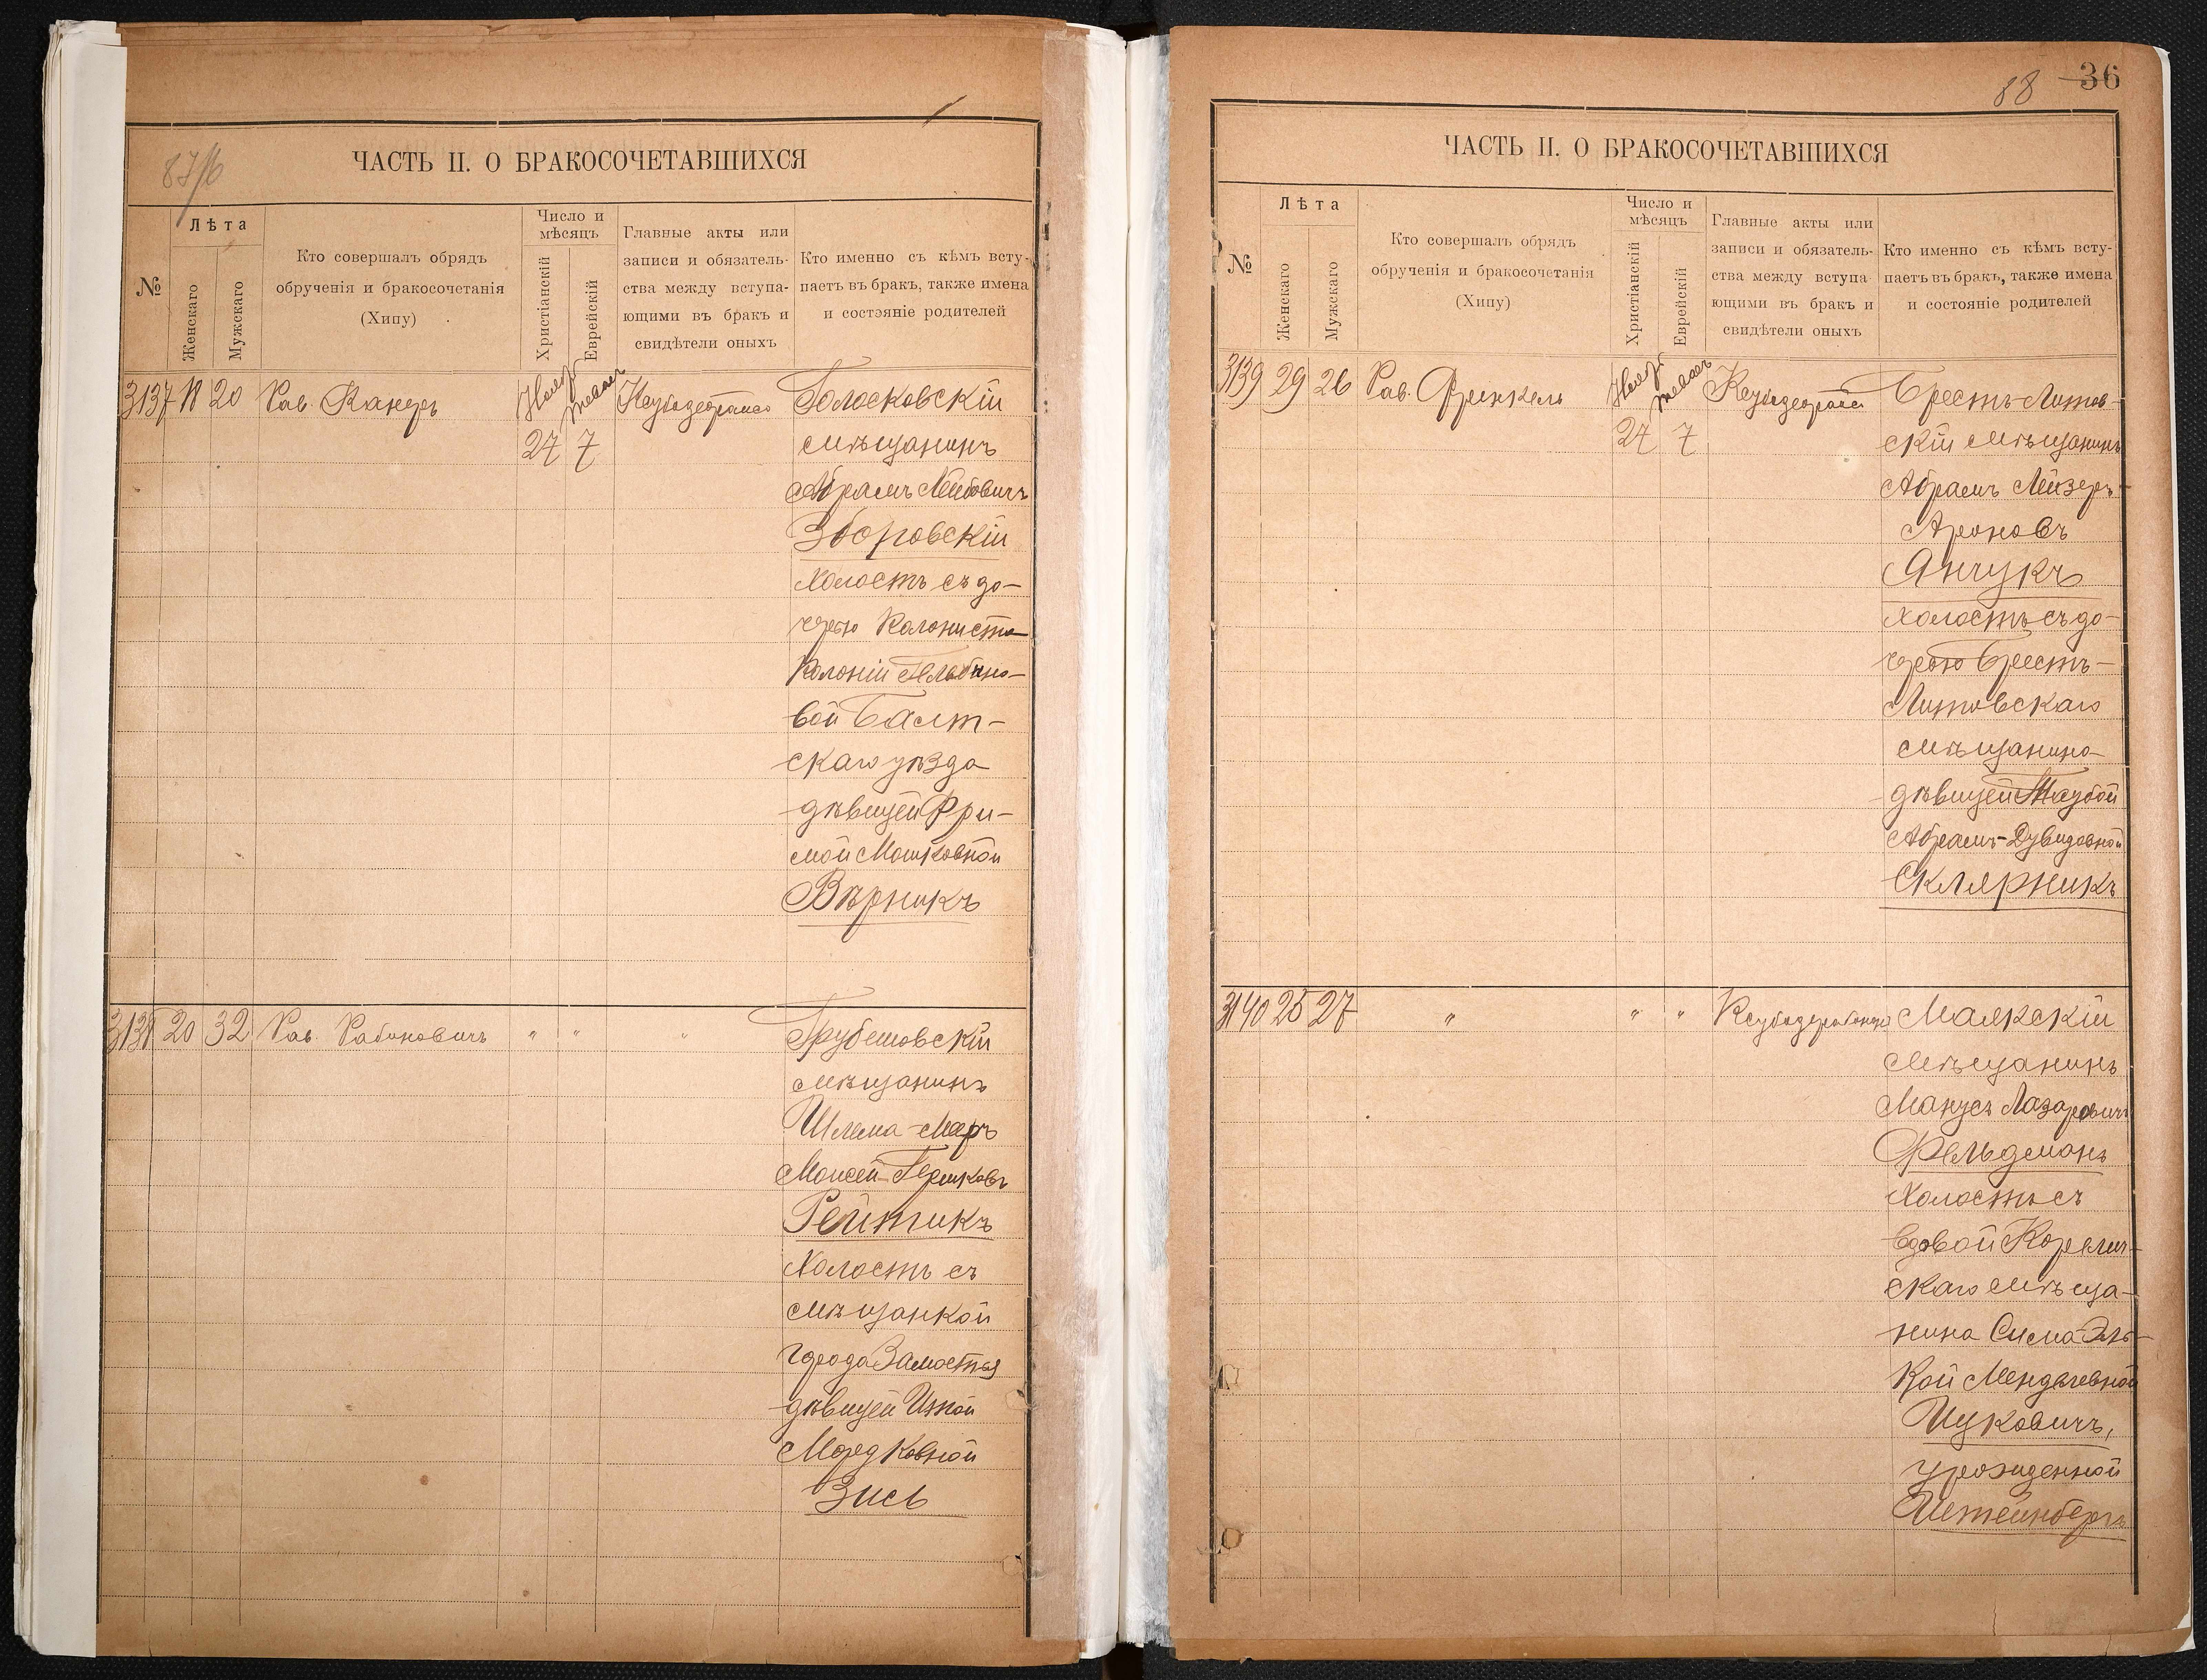 87/б
ЧАСТЬ II. О БРАКОСОЧЕТАВШИХСЯ
№
Лѣта
Женскаго
Мужскаго
Кто совершалъ обрядъ
обрученія и бракосочетанія
(Хипу)
Число и
мѣсяцъ
Христіанскій
Еврейскій
Главные акты или
записи и обязатель-
ства между вступа-
ющими въ бракъ и
свидѣтели оныхъ
Кто именно съ кѣмъ всту-
паетъ въ бракъ, также имена
и состояніе родителей
3137 18 20 Рав. Канеръ Нояб. 27 7 Голосковскій
мѣщанинъ
Абрамъ Лейбовичъ
Зборовскій
холостъ съ до-
черью Колониста
Колоніи Гельбино-
вой Балт-
скаго уѣзда
дѣвицей Фри-
мой Мошковной
Вѣрникъ
3138 20 32 Рав. Рабиновичъ " " " Грубешовскій
мѣщанинъ
Шлема-Мееръ
Моисей-Гершковъ
Рейтикъ
холостъ съ
мѣщанкой
города Замостья
дѣвицей Итой
Мордковной
Зись
88 36
ЧАСТЬ II. О БРАКОСОЧЕТАВШИХСЯ
№
Лѣта
Женскаго
Мужскаго
Кто совершалъ обрядъ
обрученія и бракосочетанія
(Хипу)
Число и
мѣсяцъ
Христіанскій
Еврейскій
Главные акты или
записи и обязатель-
ства между вступа-
ющими въ бракъ и
свидѣтели оныхъ
Кто именно съ кѣмъ всту-
паетъ въ бракъ, также имена
и состояніе родителей
3139 29 26 Рав. Френкель Нояб. 27 7 Брестъ-Литов-
скій мѣщанинъ
Абрамъ Лейзеръ-
Ароновъ
Янчукъ
холостъ съ до-
черью Брестъ-
Литовскаго
мѣщанина
дѣвицей Таубой
Абрамъ-Дувидовной
Склярникъ
3140 25 27 " " " Маякскій
мѣщанинъ
Манусъ Лазаровичъ
Фельдманъ
холостъ съ
вдовой Корелич-
скаго мѣща-
нина Сима-Эль-
кой Менделевной
Цуковичъ,
урожденной
Штейнбергъ